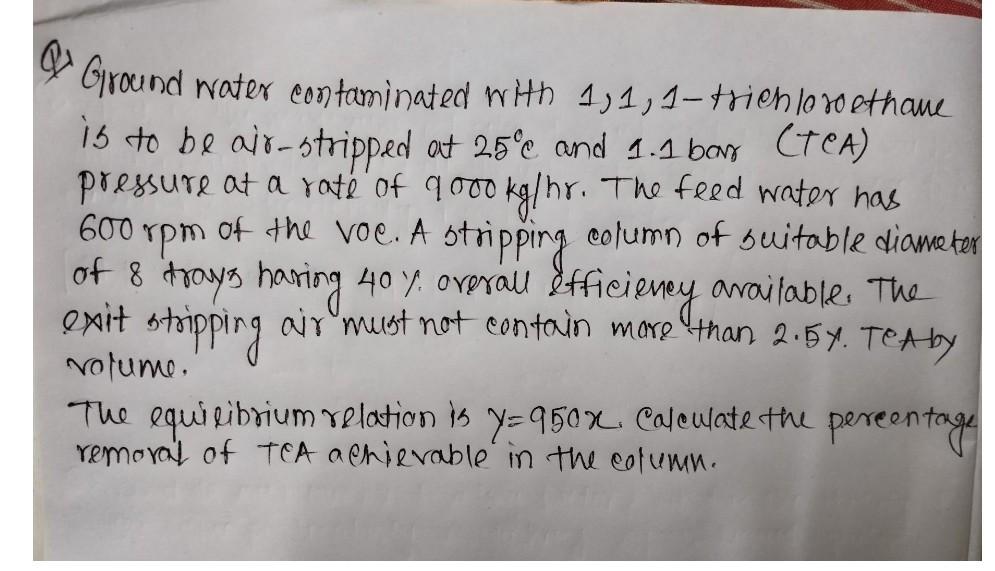 Q> Ground water contaminated with 1,1,1-trichloroethane
is to be air-stripped at 25°c and 1.1 bar (TCA)
pressure at a rate of 9000 kg/hr. The feed water has
600 rpm of the voc. A stripping column of suitable diameter
of 8 trays having 40 %. overall efficiency available. The
exit stripping air must not contain more than 2.5%. TCA by
volume.
The equilibrium relation is y=950x. Calculate the percentage
removal of TCA achievable in the column.